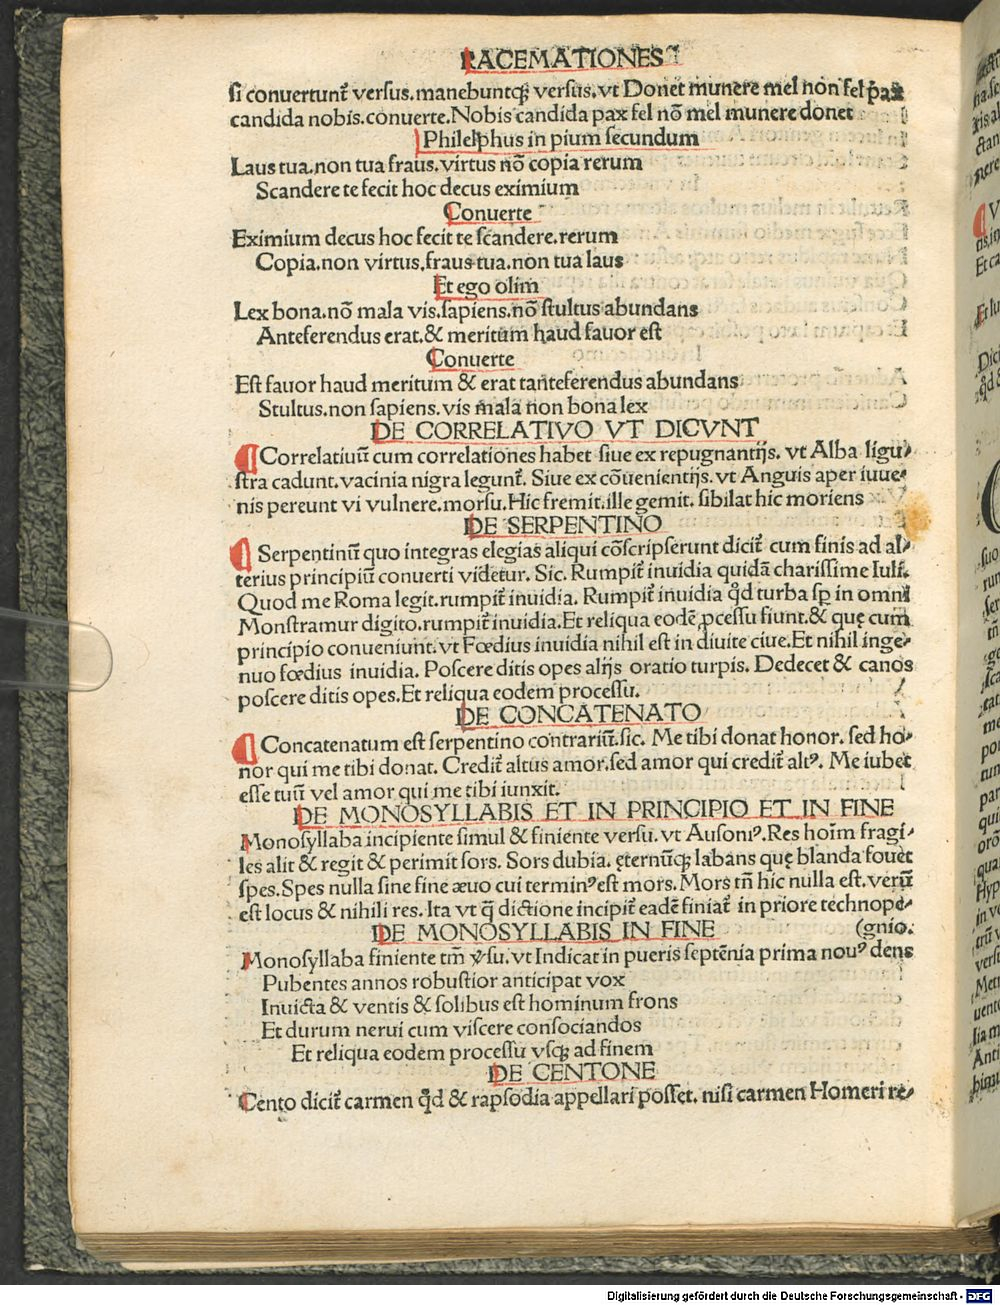 RACEMATIONES
si conuertunt̃ versus. manebuntqꝫ versus. vt Donet munere mel non fel pax
candida nobis. conuerte. Nobis candida pax fel nō mel munere donet
Philelphus in pium secundum
Laus tua. non tua fraus. virtus nō copia rerum
Scandere te fecit hoc decus eximium
Conuerte
Eximium decus hoc fecit te scandere. rerum
Copia. non virtus. fraus tua. non tua laus
Et ego olim
Lex bona. nō mala vis. sapiens. nō stultus abundans
Anteferendus erat. & meritum haud fauor est
Conuerte
Est fauor haud meritum & erat tanteferendus abundans
Stultus. non sapiens. vis mala non bona lex
DE CORRELATIVO VT DICVNT
Correlatiuū cum correlationes habet siue ex repugnantijs. vt Alba ligu⸗
stra cadunt. vacinia nigra legunt̃. Siue ex cōuenientijs. vt Anguis aper iuue⸗
nis pereunt vi vulnere. morsu. Hic fremit. ille gemit. sibilat hic moriens
DE SERPENTINO
Serpentinū quo integras elegias aliqui cōscripserunt dicit̃ cum finis ad al⸗
terius principiū conuerti videtur. Sic. Rumpit̃ inuidia quidā charissime Iuli.
Quod me Roma legit. rumpit̃ inuidia. Rumpit̃ inuidia qd̛ turba sꝑ in omni
Monstramur digito. rumpit̃ inuidia. Et reliqua eodē ꝓcessu fiunt. & quę cum
principio conueniunt. vt Fœdius inuidia nihil est in diuite ciue. Et nihil inge⸗
nuo fœdius inuidia. Poscere ditis opes alijs oratio turpis. Dedecet & canos
poscere ditis opes. Et reliqua eodem processu.
DE CONCATENATO
Concatenatum est serpentino contrariū. sic. Me tibi donat honor. sed ho⸗
nor qui me tibi donat. Credit̃ altus amor. sed amor qui credit̃ altꝰ. Me iubet
esse tuū vel amor qui me tibi iunxit.
DE MONOSYLLABIS ET IN PRINCIPIO ET IN FINE
Monosyllaba incipiente simul & finiente versu. vt Ausoniꝰ. Res hoīm fragi⸗
les alit & regit & perimit sors. Sors dubia. ęternūqꝫ labans quę blanda fouet
spes. Spes nulla sine fine æuo cui terminꝰ est mors. Mors tñ hic nulla est. verū
est locus & nihili res. Ita vt q̄ dictione incipit̃ eadē finiat̃ in priore technope⸗
DE MONOSYLLABIS IN FINE (gnio.
Monosyllaba finiente tm̄ v̛su. vt Indicat in pueris septēnia prima nouꝰ dens
Pubentes annos robustior anticipat vox
Inuicta & ventis & solibus est hominum frons
Et durum nerui cum viscere consociandos
Et reliqua eodem processu vsqꝫ ad finem
DE CENTONE
Cento dicit̃ carmen qd̛ & rapsodia appellari posset. nisi carmen Homeri re⸗
Digitalisierung gefördert durch die Deutsche Forschungsgemeinschaft - DFG